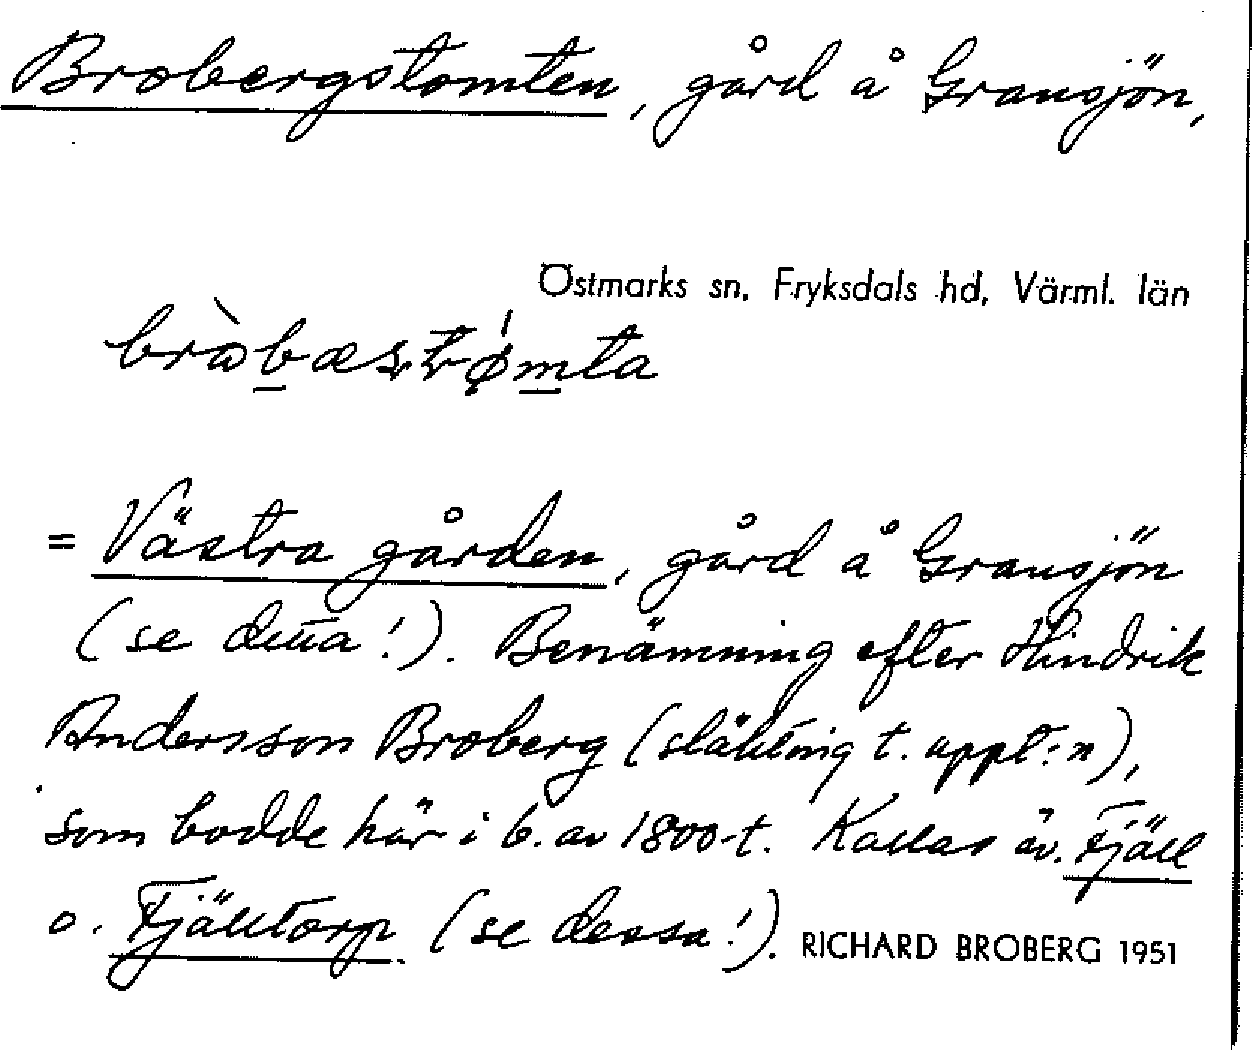 Brobergstomten, gård å Gransjön,
Östmarks sn, Fryksdals hd, Värml. län
= Västra gården, gård å Gransjön
(se denna!). Benämning efter Hindrik
Andersson Broberg (släkting t. uppt:n),
som bodde här i b. av 1800-t. Kallas äv. Fjäll
o. Fjälltorp (se dessa!). RICHARD BROBERG 1951